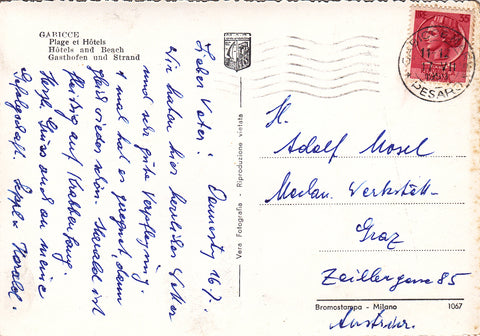 GABICCE
Plage et Hôtels
Hôtels and Beach
Gasthofen und Strand
Lieber Vater! Donnerstg 16/7.
Wir haben hier herrliches Wetter
und sehr gute Verpflegung
1 mal hat es geregnet, dann
gleich wieder schön. Harald ist
fleissig auf Krabbenfang.
Herzl. Grüsse auch an meine
Gefolgschaft. Seppl u Harald.
Vera Fotografia - Riproduzione vietata
35
GABICCE
17 VII
PESARO
H.
Adolf Mosel
Mechan. Werkstätt
Graz
Zeillergasse 85
Austria.
Bromostampa - Milano 1067